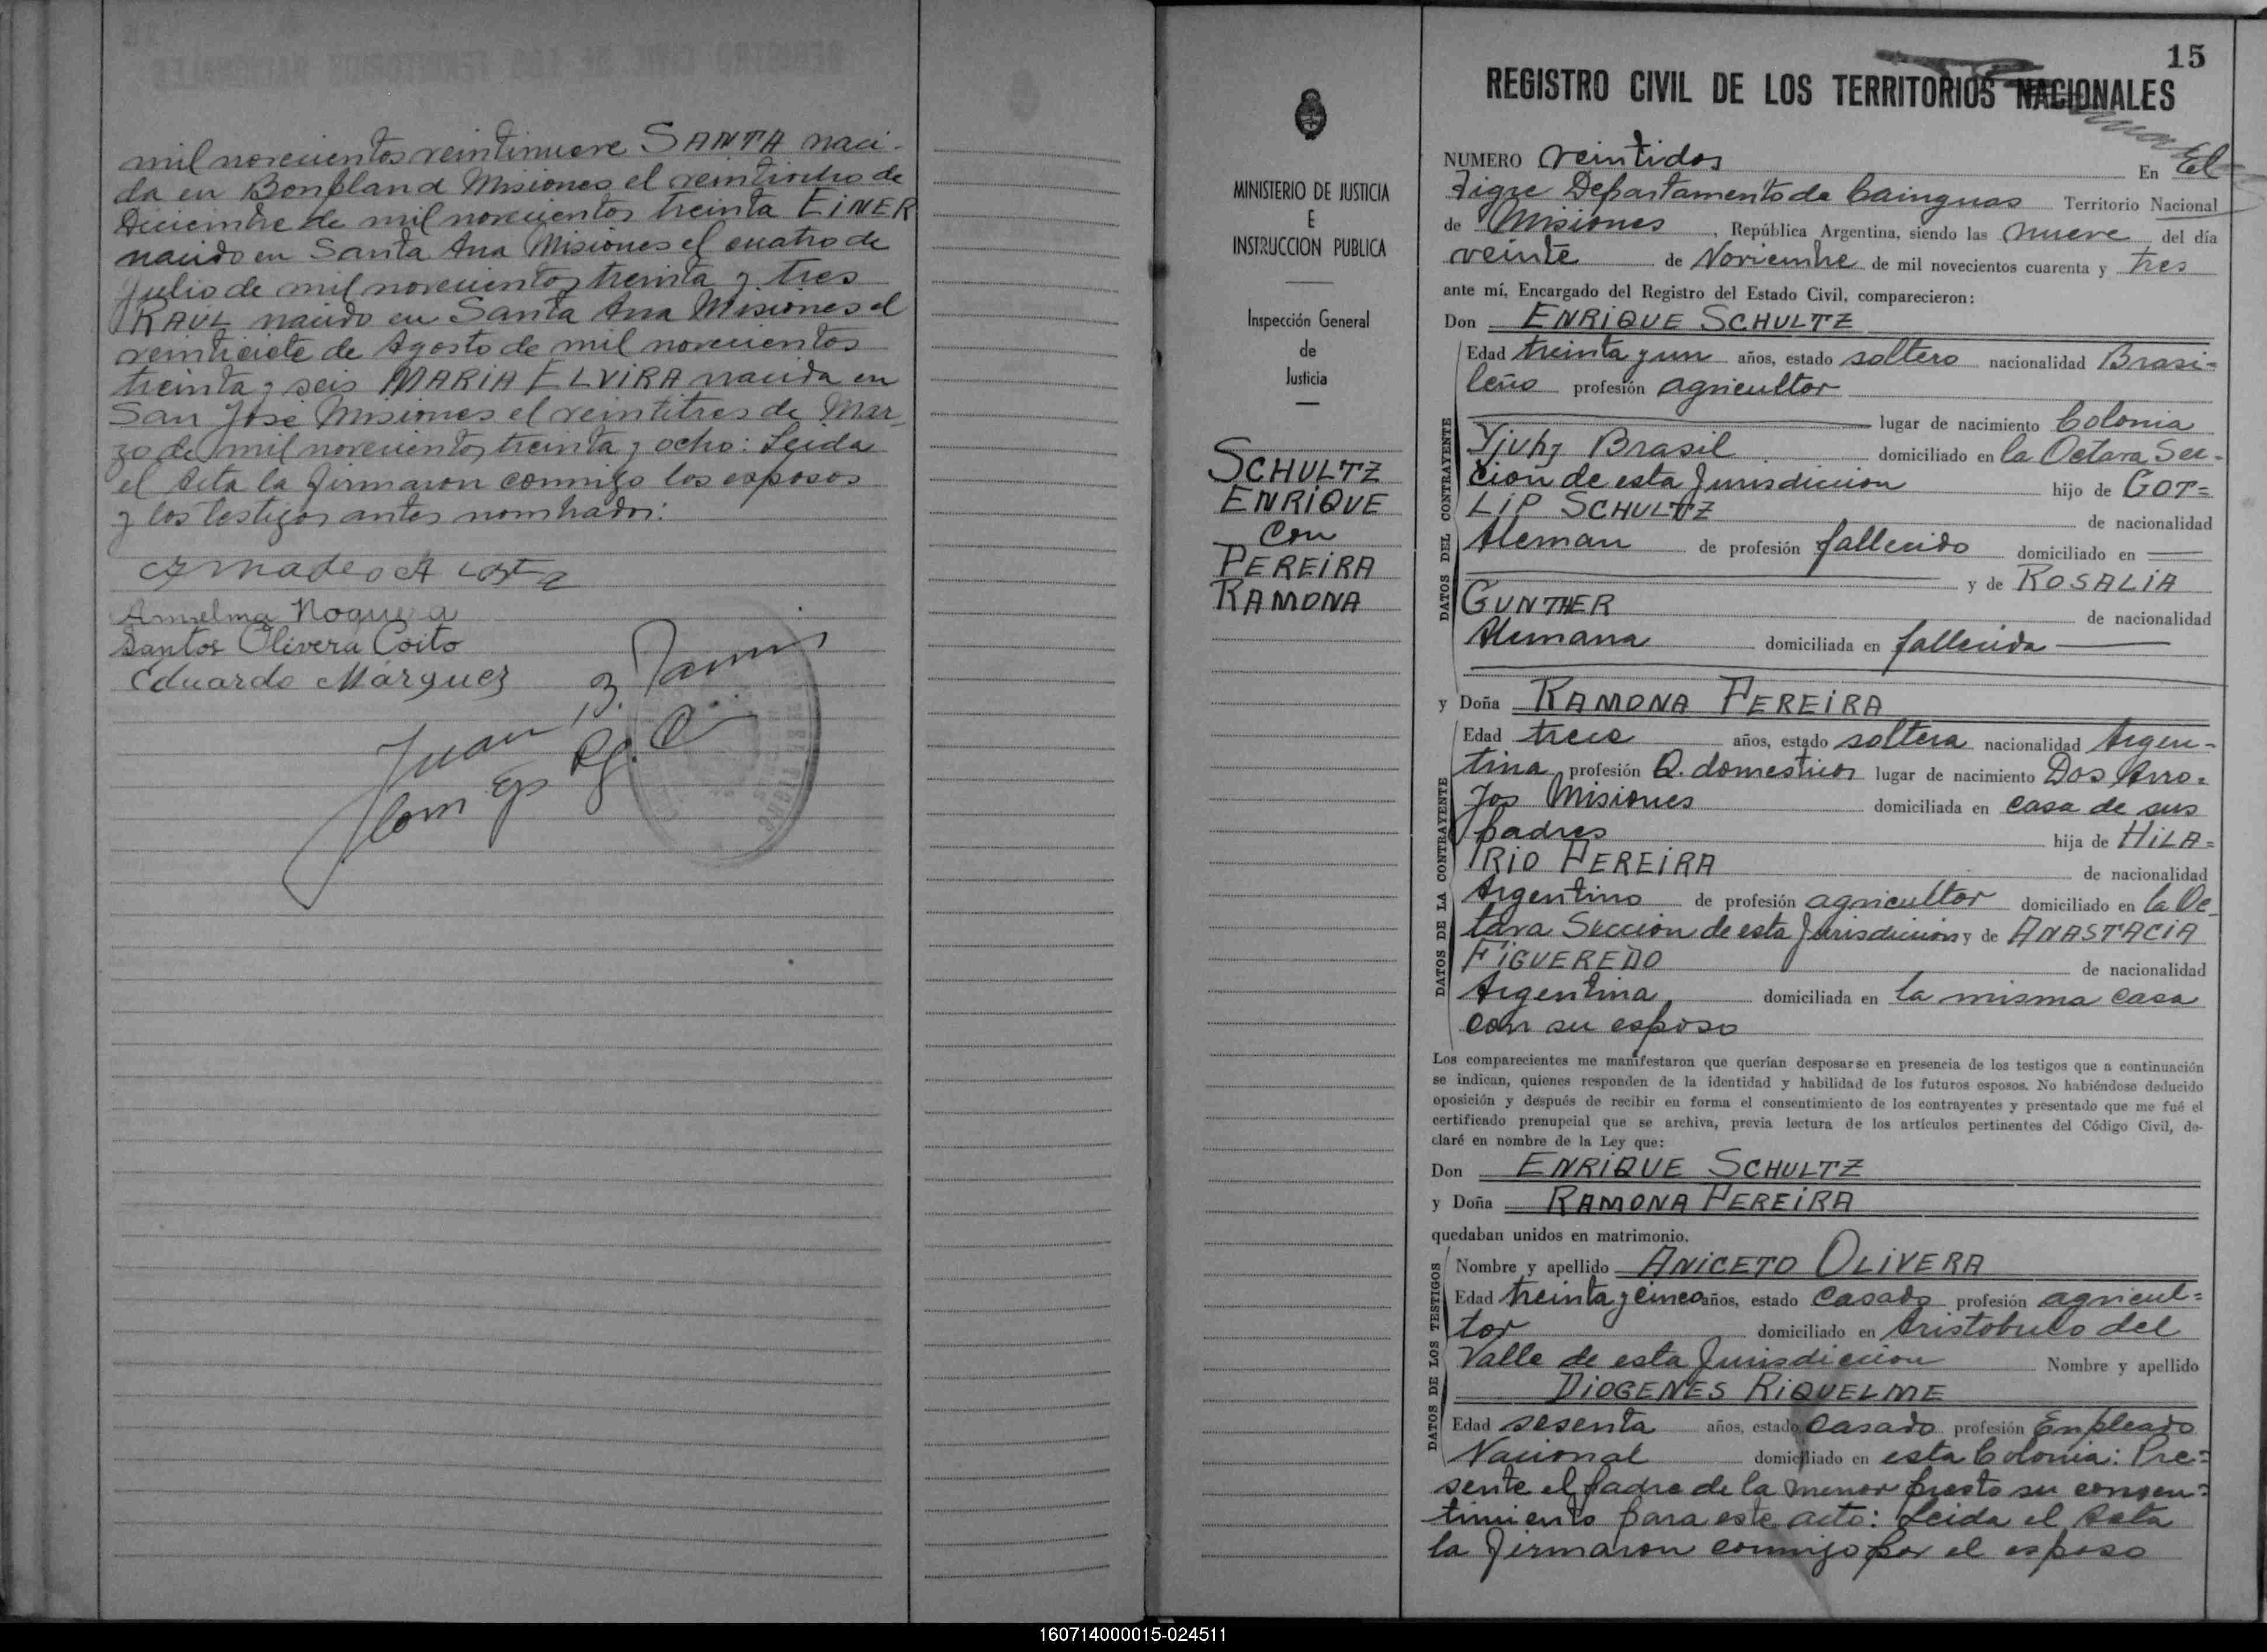 mil novecientos veintinueve SANTA naci-
da en Bonpland Misiones el veintiocho de
Diciembre de mil novecientos treinta EINER
nacido en Santa Ana Misiones el cuatro de
Julio de mil novecientos treinta y tres
RAUL nacido en Santa Ana Misiones el
veinticiete de Agosto de mil novecientos
treinta y seis MARIA ELVIRA nacida en
San José Misiones el veintitres de Mar_
zo de mil novecientos treinta y ocho: Leida
el Acta la firmaron conmigo los esposos
y los testigos antes nombrados:
Amadeo Acosta
Anselma Noguera
Santos Olivera Coito
Eduardo Márquez
Juan B.
15
REGISTRO CIVIL DE LOS TERRITORIOS NACIONALES
MINISTERIO DE JUSTICIA
E
INSTRUCCION PUBLICA
Inspección General
de
Justicia
SCHULTZ
ENRIQUE
con
PEREIRA
RAMONA
NUMERO veintidos En El
Tigre Departamento de Cainguas Territorio Nacional
de Misiones, República Argentina, siendo las nueve del día
veinte de Noviembre de mil novecientos cuarenta y tres
ante mí, Encargado del Registro del Estado Civil, comparecieron:
Don ENRIQUE SCHULTZ
DATOS DEL CONTRAYENTE
Edad treinta y un años, estado soltero nacionalidad Brasi=
leño profesión agricultor
lugar de nacimiento Colonia
Yjuhy Brasil domiciliado en la Octava Sec-
cion de esta Jurisdiccion hijo de GOT=
LIP SCHULTZ de nacionalidad
Aleman de profesión fallecido domiciliado en
y de ROSALIA
GUNTHER de nacionalidad
Alemana domiciliada en fallecida
y Doña RAMONA PEREIRA
DATOS DE LA CONTRAYENTE
Edad trece años, estado soltera nacionalidad Argen-
tina profesión Q. domesticos lugar de nacimiento Dos Arro=
yos Misiones domiciliada en casa de sus
padres hija de HILA=
RIO PEREIRA de nacionalidad
Argentino de profesión agricultor domiciliado en la Oc_
tava Seccion de esta Jurisdiccion y de ANASTACIA
FIGUEREDO de nacionalidad
Argentina domiciliada en la misma casa
con su esposo
Los comparecientes me manifestaron que querían desposarse en presencia de los testigos que a continuación
se indican, quienes responden de la identidad y habilidad de los futuros esposos. No habiéndose deducido
oposición y después de recibir en forma el consentimiento de los contrayentes y presentado que me fué el
certificado prenupcial que se archiva, previa lectura de los artículos pertinentes del Código Civil, de-
claré en nombre de la Ley que:
Don ENRIQUE SCHULTZ
y Doña RAMONA PEREIRA
quedaban unidos en matrimonio.
DATOS DE LOS TESTIGOS
Nombre y apellido ANICETO OLIVERA
Edad treinta y cinco años, estado casado profesión agricul=
tor domiciliado en Aristobulo del
Valle de esta Jurisdiccion Nombre y apellido
DIOGENES RIQUELME
Edad sesenta años, estado casado profesión Empleado
Nacional domiciliado en esta Colonia: Pre=
sente el padre de la menor presto su consen=
timiento para este acto: Leida el Acta
la firmaron conmigo por el esposo
160714000015-024511